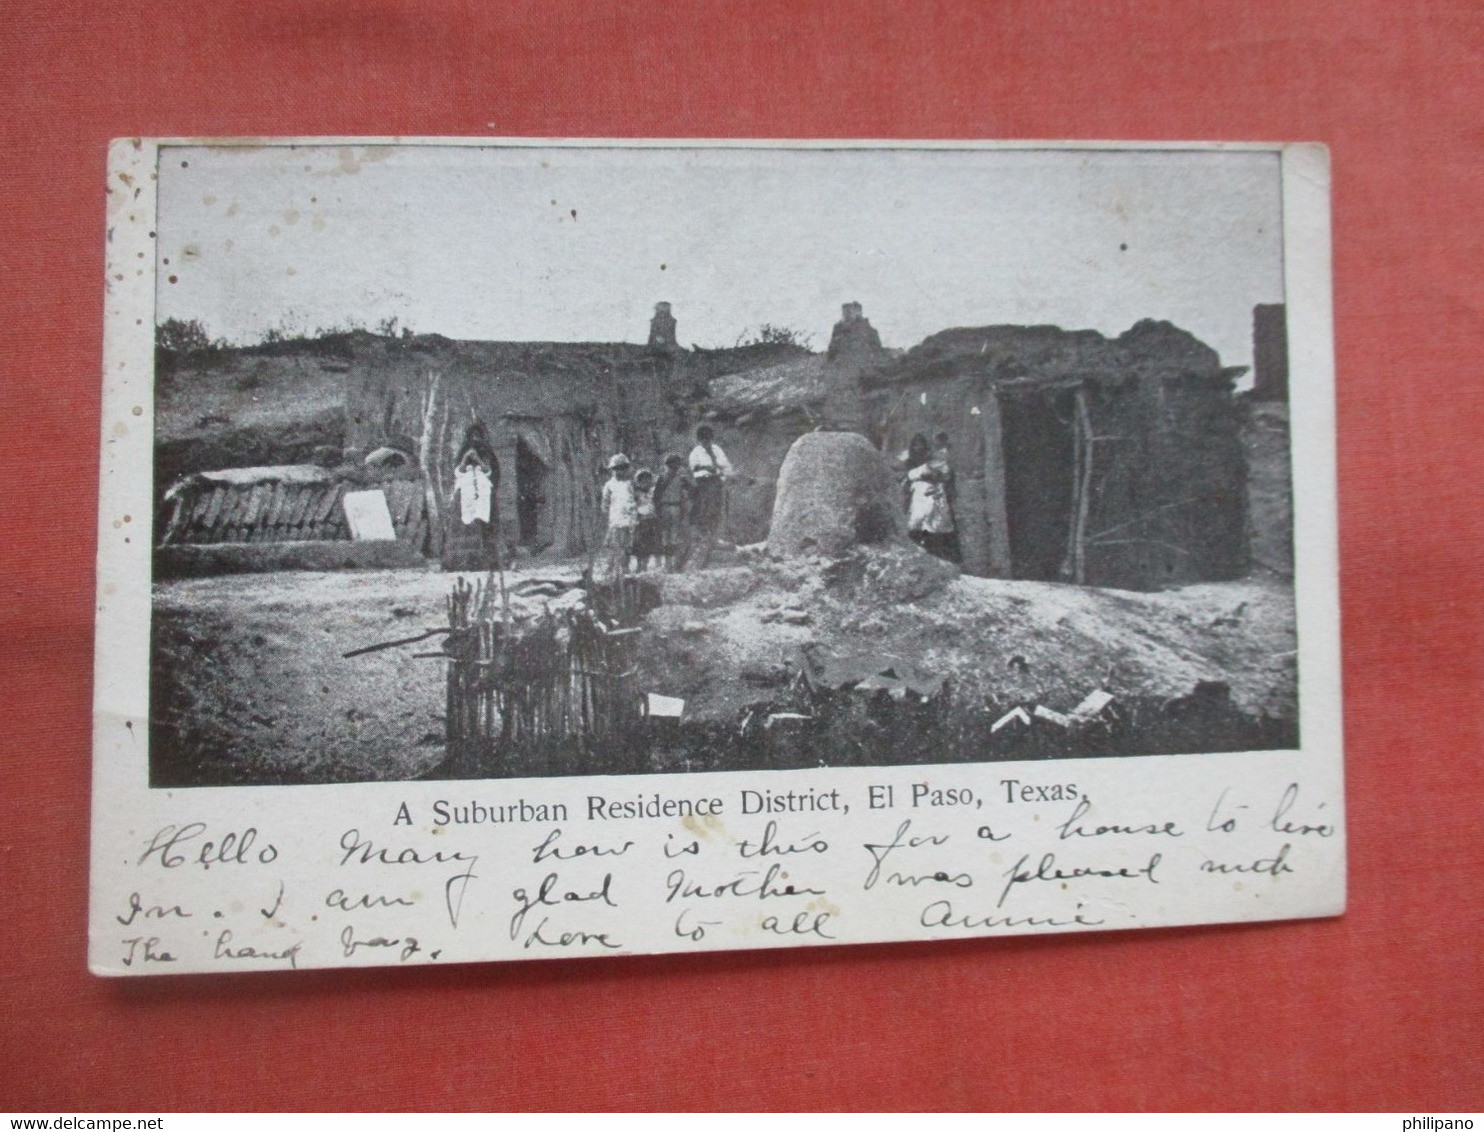 A Suburban Residence District, El Paso, Texas.
Hello Mary how is this for a house to live
in. I am glad Mother was pleased with
The hand bag. Love to all Annie
delcampe.net
philipano